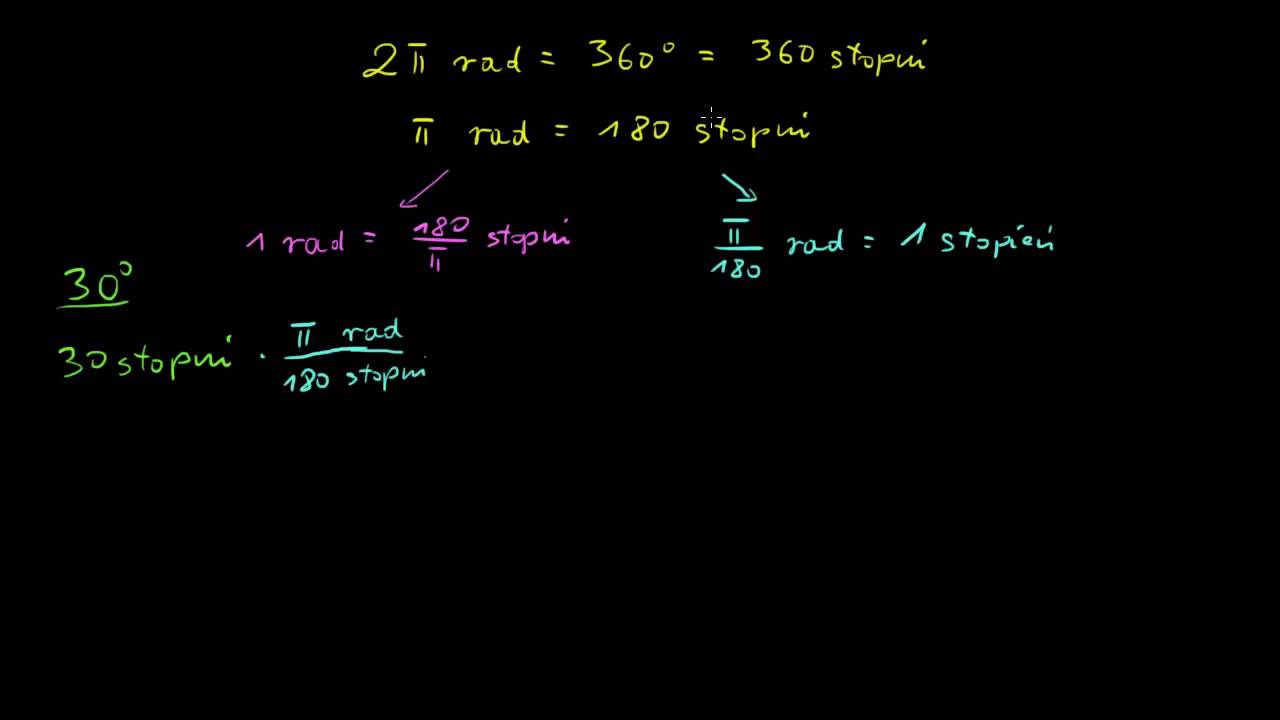 2π rad = 360° = 360 stopni
π rad = 180 stopni
1 rad = 180/π stopni
π/180 rad = 1 stopień
30°
30 stopni · π rad / 180 stopni